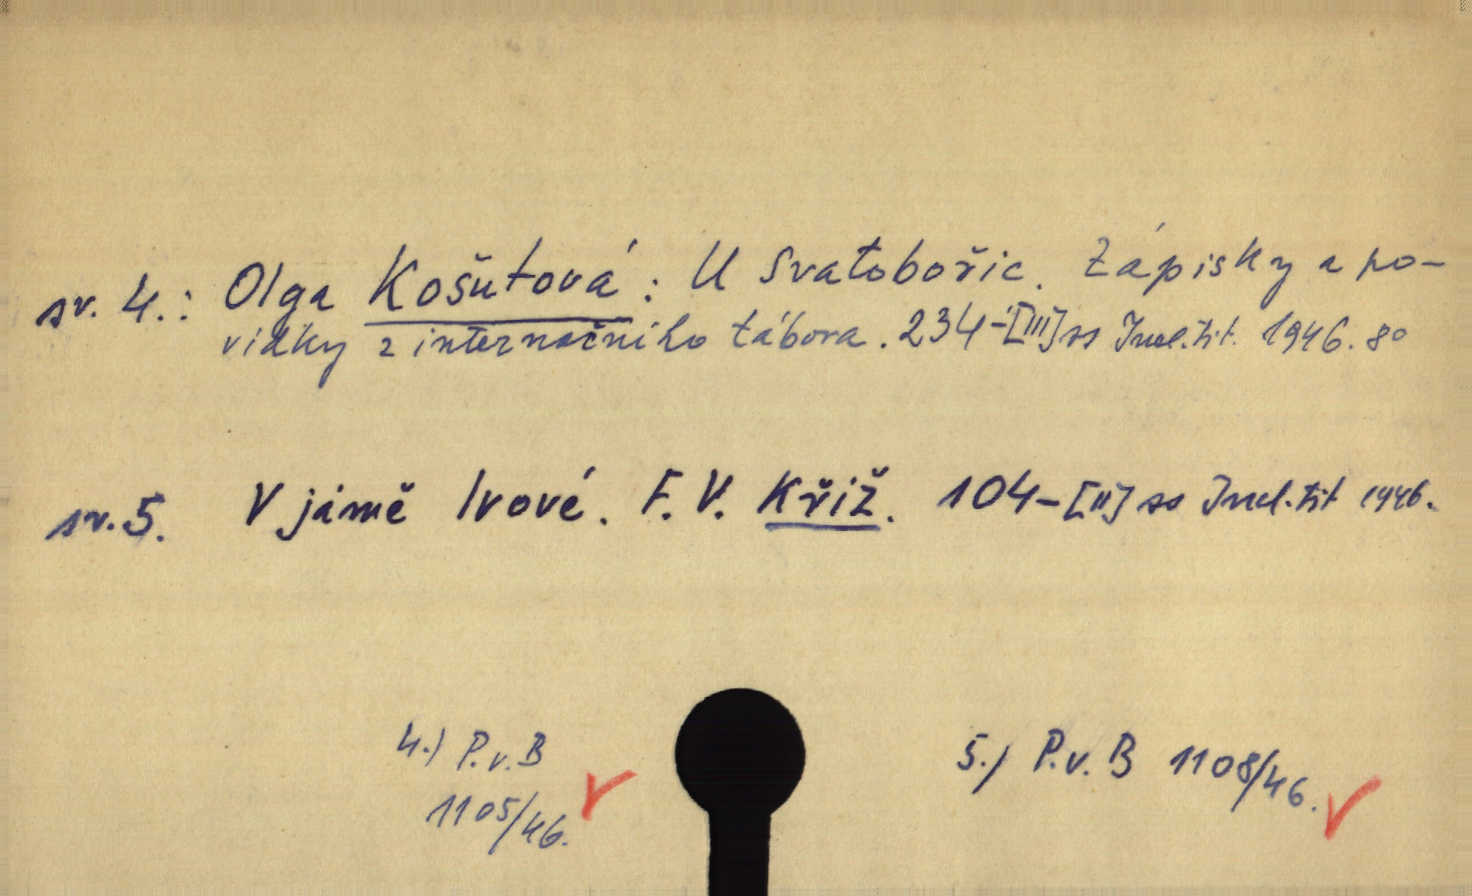 sv. 4.: Olga Košutová: U Svatobořic. Zápisky a po-
vídky z internačního tábora. 234-[III] ss Incl. tit. 1946. 8o
sv. 5. V jámě lvové. F. V. Kříž. 104-[II] ss Incl. tit 1946.
4.) P. v. B
1105/46.
5.) P. v. B 1108/46.